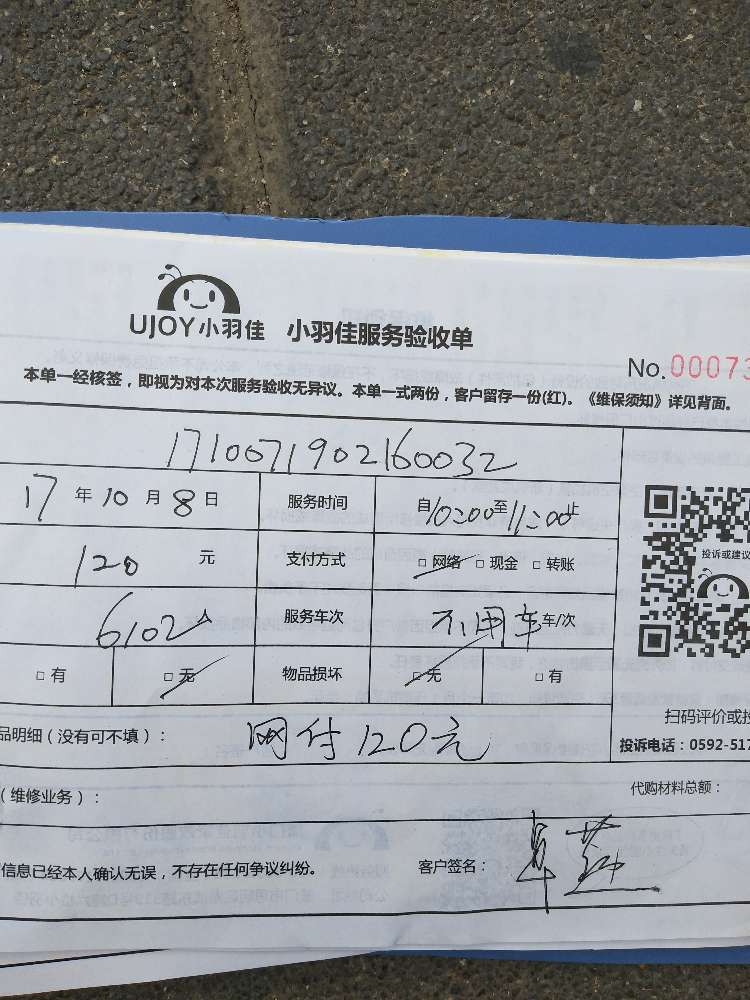 UJOY小羽佳 小羽佳服务验收单
No.00073
本单一经核签，即视为对本次服务验收无异议。本单一式两份，客户留存一份(红)。《维保须知》详见背面。
1710071902160032
17年10月8日 服务时间 自10:00至11:00止
120元 支付方式 □网络 □现金 □转账
6102人 服务车次 不用车车/次
□有 □无 物品损坏 □无 □有
投诉或建议
扫码评价或投
品明细（没有可不填）： 网付120元
投诉电话：0592-517
（维修业务）： 代购材料总额：
信息已经本人确认无误，不存在任何争议纠纷。 客户签名：